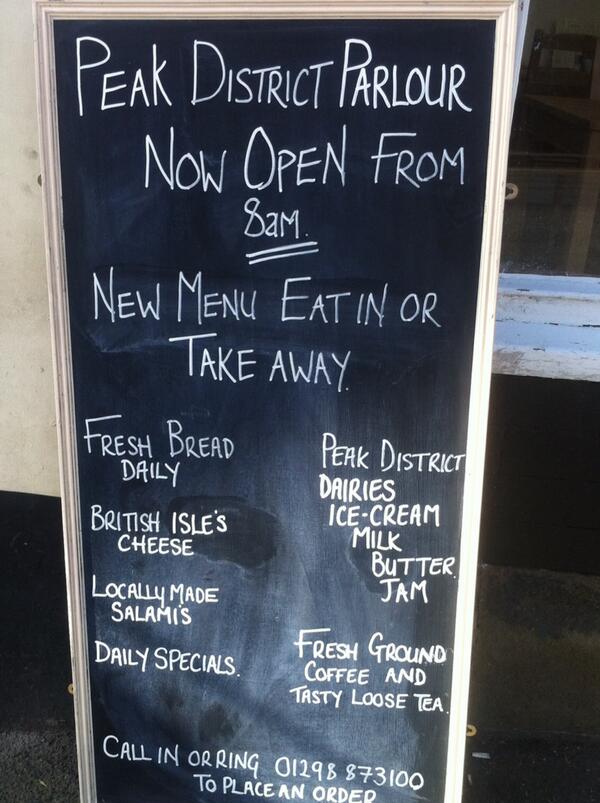 PEAK DISTRICT PARLOUR
NOW OPEN FROM
8am.
NEW MENU EAT IN OR
TAKE AWAY.
FRESH BREAD
DAILY
BRITISH ISLE'S
CHEESE
LOCALLY MADE
SALAMI'S
DAILY SPECIALS.
PEAK DISTRICT
DAIRIES
ICE-CREAM
MILK
BUTTER
JAM
FRESH GROUND
COFFEE AND
TASTY LOOSE TEA.
CALL IN OR RING 01298 873100
TO PLACE AN ORDER